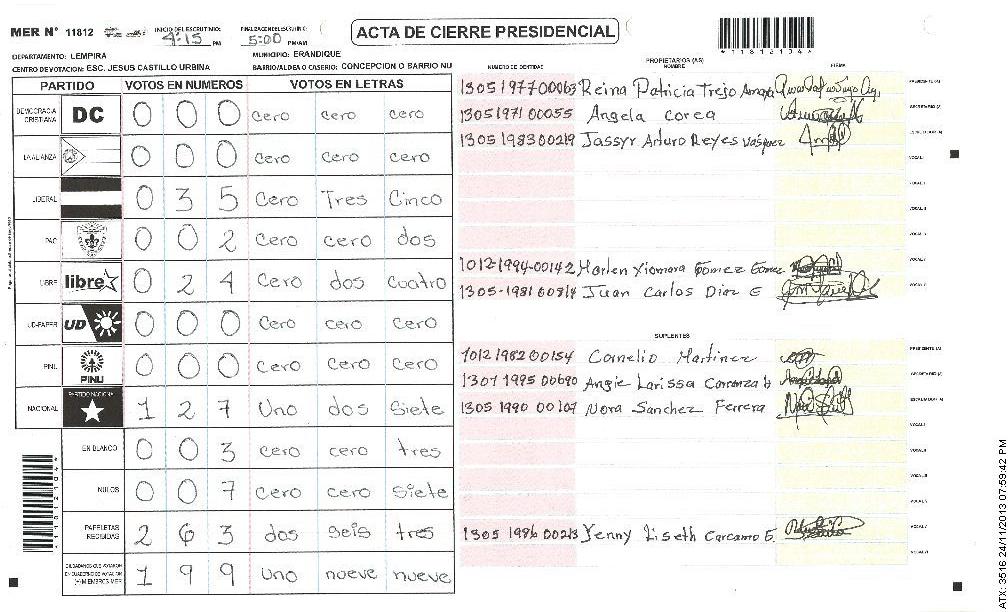 MER Nº 11812
INICIO DEL ESCRUTINIO: 4:15 PM
FINALIZACION DEL ESCRUTINIO: 5:00 PM/AM
ACTA DE CIERRE PRESIDENCIAL
*11812104*
DEPARTAMENTO: LEMPIRA
MUNICIPIO: ERANDIQUE
CENTRO DE VOTACION: ESC. JESUS CASTILLO URBINA
BARRIO/ALDEA O CASERIO: CONCEPCION O BARRIO NU
PARTIDO VOTOS EN NUMEROS VOTOS EN LETRAS
DEMOCRACIA CRISTIANA DC 0 0 0 cero cero cero
LA ALIANZA 0 0 0 cero cero cero
LIBERAL 0 3 5 Cero Tres Cinco
PAC 0 0 2 Cero cero dos
LIBRE libre 0 2 4 Cero dos cuatro
UD-FAPER UD 0 0 0 Cero cero Cero
PINU PINU 0 0 0 Cero Cero Cero
NACIONAL PARTIDO NACIONAL 1 2 7 Uno dos Siete
EN BLANCO 0 0 3 cero cero tres
NULOS 0 0 7 cero cero Siete
PAPELETAS RECIBIDAS 2 6 3 dos seis tres
CIUDADANOS QUE VOTARON EN CUADERNO DE VOTACION (+) MIEMBROS MER 1 9 9 Uno nueve nueve
NUMERO DE IDENTIDAD PROPIETARIOS (AS) NOMBRE FIRMA
1305197700063 Reina Patricia Trejo Amaya PRESIDENTE (A)
1305197100055 Angela corea SECRETARIO (A)
1305198300219 Jassyr Arturo Reyes Vásquez ESCRUTADOR (A)
VOCAL I
VOCAL II
VOCAL III
VOCAL IV
1012-1994-00142 Marlen Xiomara Gomez Gomez VOCAL V
1305-1981 00814 Juan Carlos Diaz G
SUPLENTES
1012 1982 00154 Cornelio Martinez PRESIDENTE (A)
1307 1995 00690 Angie Larissa Carranza SECRETARIO (A)
1305 1990 00109 Nora Sanchez Ferrera ESCRUTADOR (A)
VOCAL I
VOCAL II
VOCAL III
VOCAL IV
1305 1986 00213 Yenny Liseth Carcamo G. VOCAL V
VOCAL VI
ATX: 3516 24/11/2013 07:59:42 PM